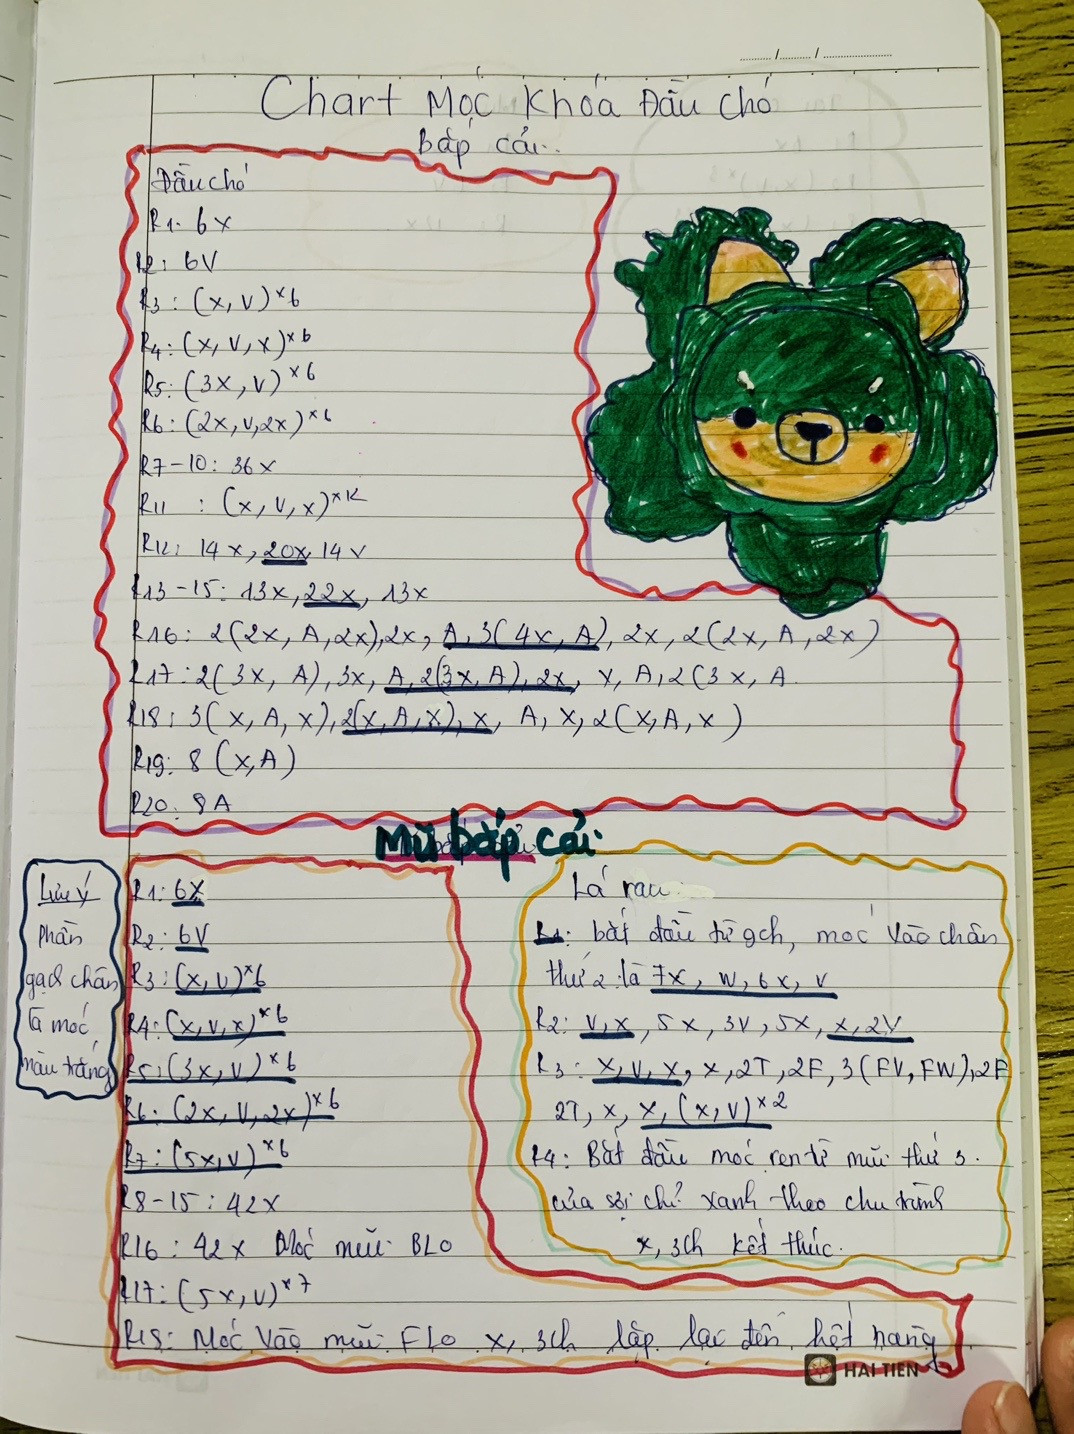 Chart Móc Khóa Đầu Chó
Bắp cải..
Đầu chó
R1: 6x
R2: 6V
R3: (x, V)×6
R4: (x, V, x)×6
R5: (3x, V)×6
R6: (2x, V, 2x)×6
R7-10: 36x
R11 : (x, V, x)×12
R12: 14x, 20x, 14v
R13-15: 13x, 22x, 13x
R16: 2(2x, A, 2x), 2x, A, 3(4x, A), 2x, 2(2x, A, 2x)
R17: 2(3x, A), 3x, A, 2(3x, A), 2x, x, A, 2(3x, A
R18: 3(x, A, x), 2(x, A, x), x, A, x, 2(x, A, x)
R19: 8(x, A)
R20: 8A
Mũ bắp cải
Lưu ý
phần
gạch chân
là móc
màu trắng
R1: 6X
R2: 6V
R3: (x, V)×6
R4: (x, v, x)×6
R5: (3x, V)×6
R6: (2x, V, 2x)×6
R7: (5x, V)×6
R8-15: 42x
R16: 42x Móc mũi BLO
R17: (5x, V)×7
R18: Móc vào mũi FLO x, 3ch lặp lại đến hết hàng
Lá rau
R1: bắt đầu từ 9ch, móc vào chân
thứ 2 là 7x, W, 6x, V
R2: V, x, 5x, 3V, 5x, x, 2V
R3: x, V, x, x, 2T, 2F, 3(FV, FW), 2F
2T, x, x, (x, V)×2
R4: Bắt đầu móc ren từ mũi thứ 3
của sợi chỉ xanh theo chu trình
x, 3ch kết thúc.
HẢI TIẾN